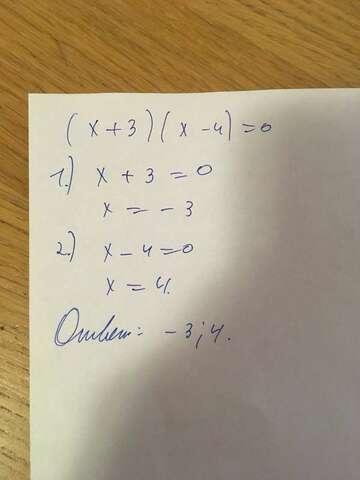 (x+3)(x-4)=0
1.) x+3=0
x=-3
2.) x-4=0
x=4.
Ответ: -3;4.